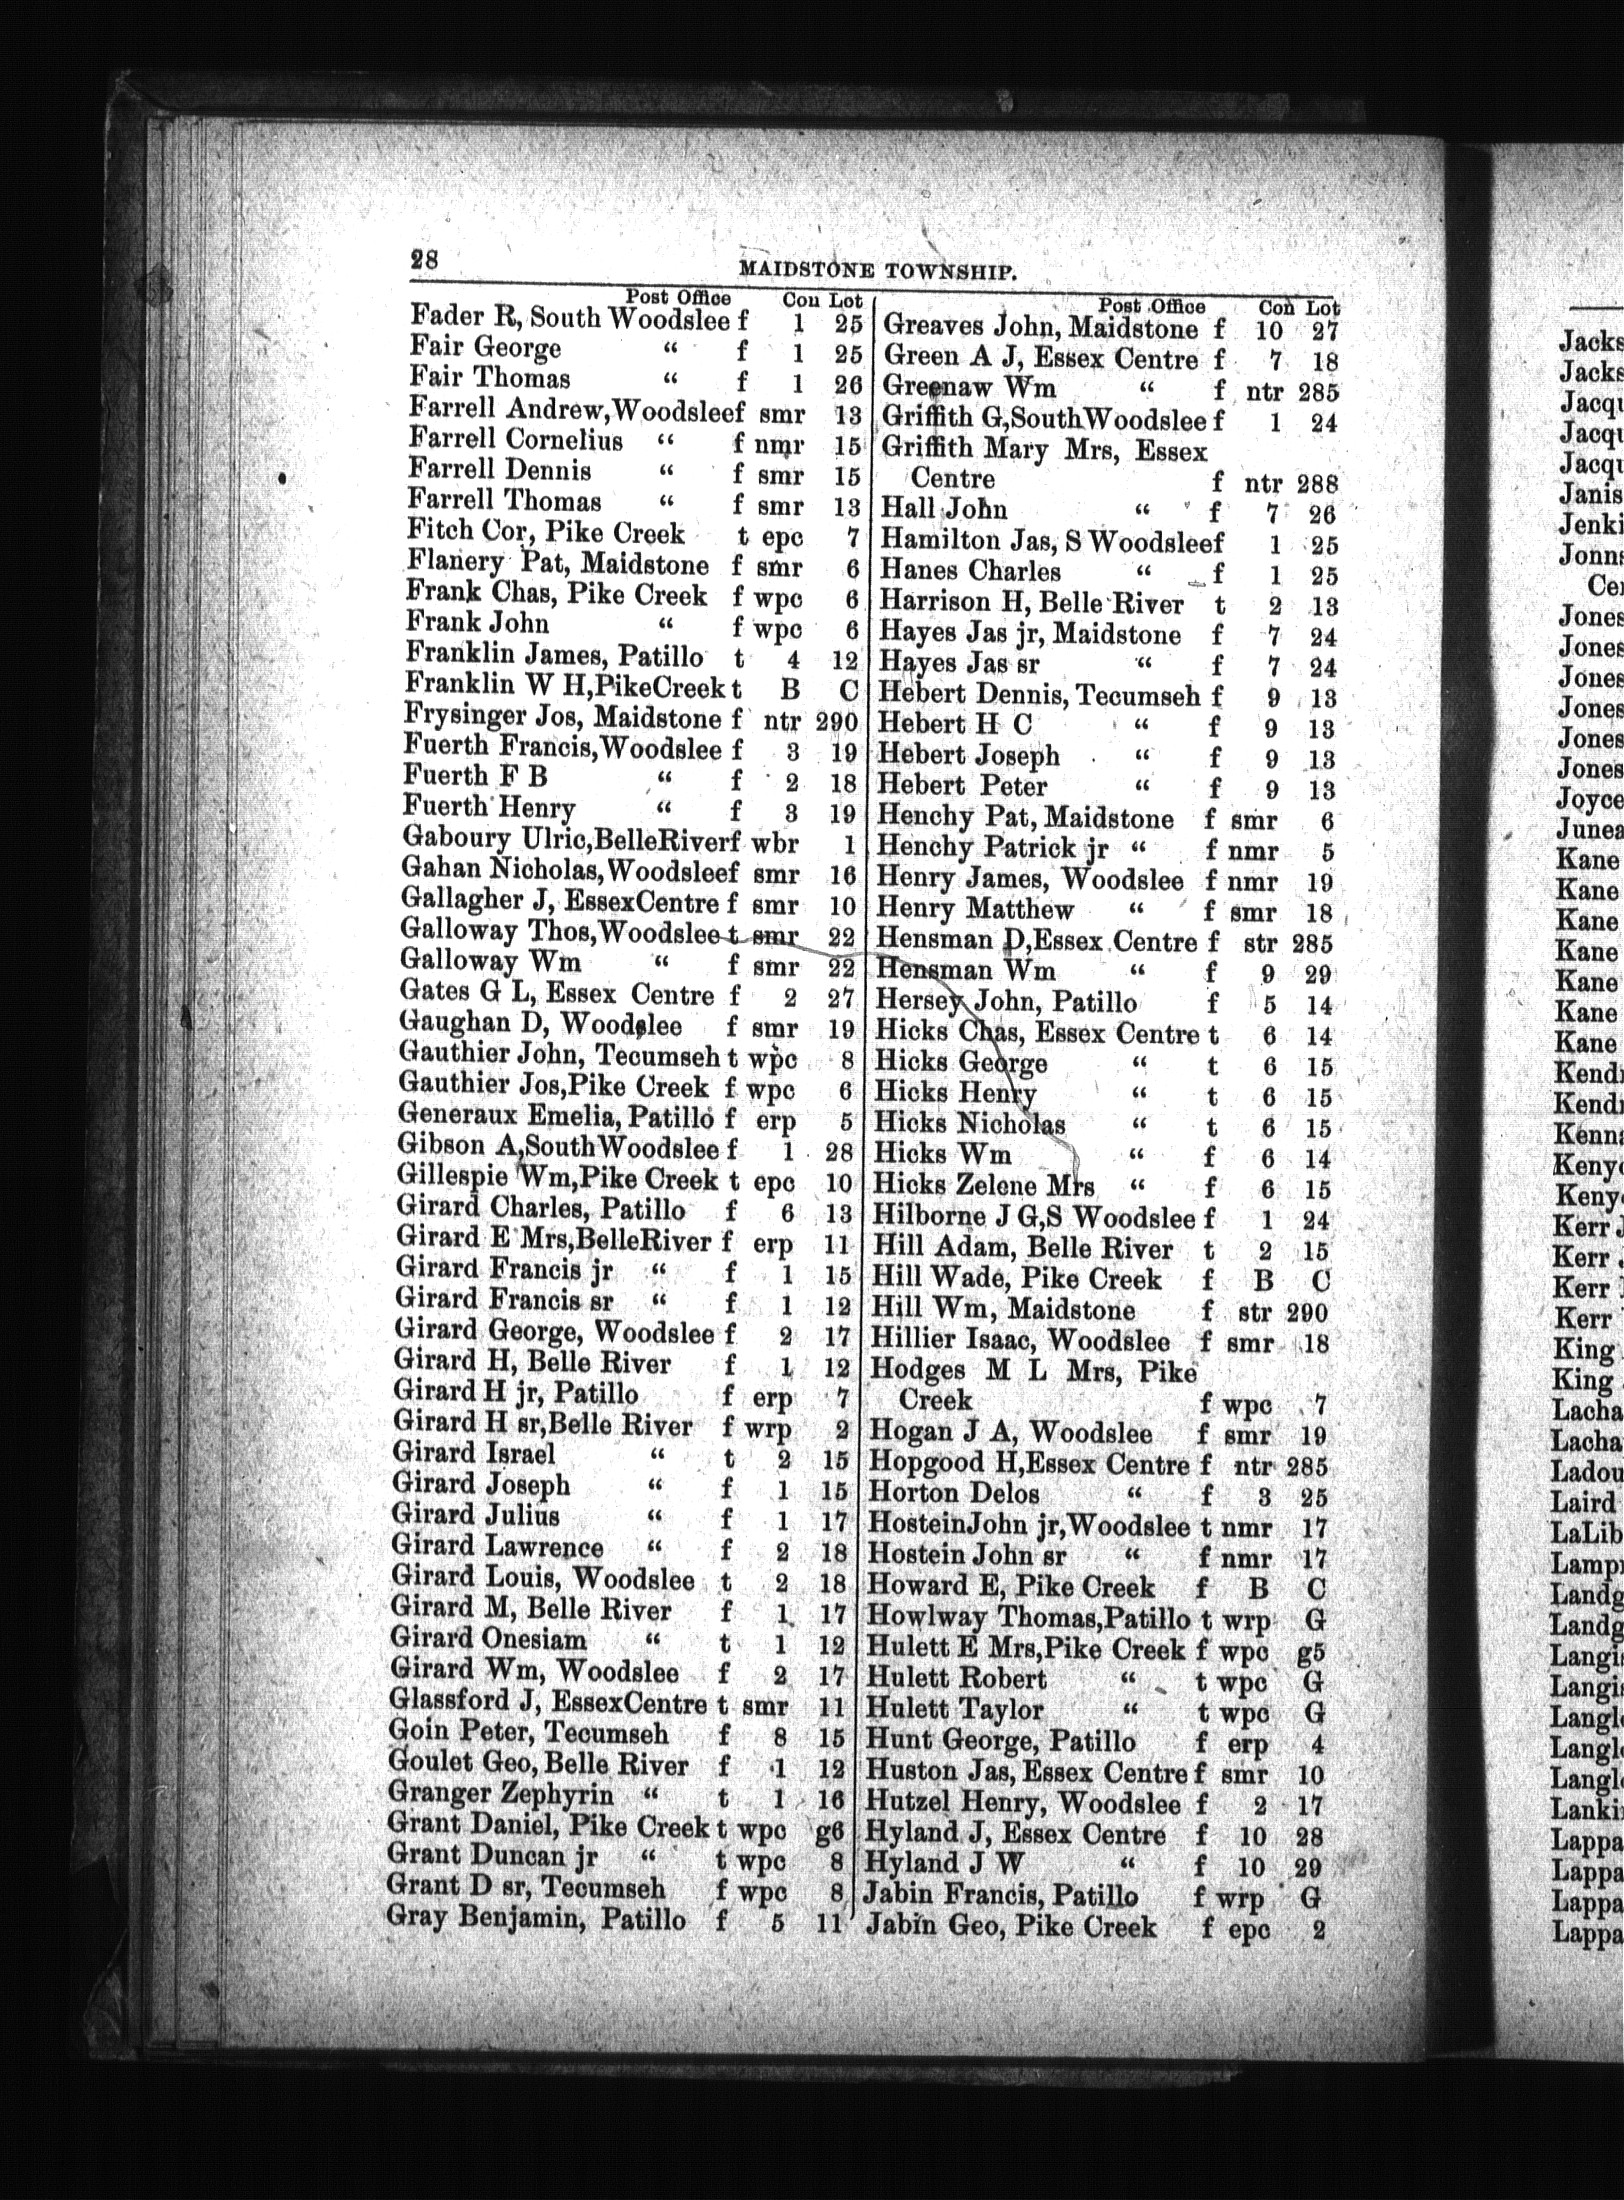 28
MAIDSTONE TOWNSHIP.
Post Office Con Lot
Fader R, South Woodslee f 1 25
Fair George “ f 1 25
Fair Thomas “ f 1 26
Farrell Andrew,Woodsleef smr 13
Farrell Cornelius “ f nmr 15
Farrell Dennis “ f smr 15
Farrell Thomas “ f smr 13
Fitch Cor, Pike Creek t epc 7
Flanery Pat, Maidstone f smr 6
Frank Chas, Pike Creek f wpc 6
Frank John “ f wpc 6
Franklin James, Patillo t 4 12
Franklin W H,PikeCreek t B C
Frysinger Jos, Maidstone f ntr 290
Fuerth Francis,Woodslee f 3 19
Fuerth F B “ f 2 18
Fuerth Henry “ f 3 19
Gaboury Ulric,BelleRiverf wbr 1
Gahan Nicholas,Woodsleef smr 16
Gallagher J, EssexCentre f smr 10
Galloway Thos,Woodslee t smr 22
Galloway Wm “ f smr 22
Gates G L, Essex Centre f 2 27
Gaughan D, Woodslee f smr 19
Gauthier John, Tecumseh t wpc 8
Gauthier Jos,Pike Creek f wpc 6
Generaux Emelia, Patillo f erp 5
Gibson A,SouthWoodslee f 1 28
Gillespie Wm,Pike Creek t epc 10
Girard Charles, Patillo f 6 13
Girard E Mrs,BelleRiver f erp 11
Girard Francis jr “ f 1 15
Girard Francis sr “ f 1 12
Girard George, Woodslee f 2 17
Girard H, Belle River f 1 12
Girard H jr, Patillo f erp 7
Girard H sr,Belle River f wrp 2
Girard Israel “ t 2 15
Girard Joseph “ f 1 15
Girard Julius “ f 1 17
Girard Lawrence “ f 2 18
Girard Louis, Woodslee t 2 18
Girard M, Belle River f 1 17
Girard Onesiam “ t 1 12
Girard Wm, Woodslee f 2 17
Glassford J, EssexCentre t smr 11
Goin Peter, Tecumseh f 8 15
Goulet Geo, Belle River f 1 12
Granger Zephyrin “ t 1 16
Grant Daniel, Pike Creek t wpc g6
Grant Duncan jr “ t wpc 8
Grant D sr, Tecumseh f wpc 8
Gray Benjamin, Patillo f 5 11
Post Office Con Lot
Greaves John, Maidstone f 10 27
Green A J, Essex Centre f 7 18
Greenaw Wm “ f ntr 285
Griffith G,SouthWoodslee f 1 24
Griffith Mary Mrs, Essex
Centre f ntr 288
Hall John “ f 7 26
Hamilton Jas, S Woodsleef 1 25
Hanes Charles “ f 1 25
Harrison H, Belle River t 2 13
Hayes Jas jr, Maidstone f 7 24
Hayes Jas sr “ f 7 24
Hebert Dennis, Tecumseh f 9 13
Hebert H C “ f 9 13
Hebert Joseph “ f 9 13
Hebert Peter “ f 9 13
Henchy Pat, Maidstone f smr 6
Henchy Patrick jr “ f nmr 5
Henry James, Woodslee f nmr 19
Henry Matthew “ f smr 18
Hensman D,Essex Centre f str 285
Hensman Wm “ f 9 29
Hersey John, Patillo f 5 14
Hicks Chas, Essex Centre t 6 14
Hicks George “ t 6 15
Hicks Henry “ t 6 15
Hicks Nicholas “ t 6 15
Hicks Wm “ f 6 14
Hicks Zelene Mrs “ f 6 15
Hilborne J G,S Woodslee f 1 24
Hill Adam, Belle River t 2 15
Hill Wade, Pike Creek f B C
Hill Wm, Maidstone f str 290
Hillier Isaac, Woodslee f smr 18
Hodges M L Mrs, Pike
Creek f wpc 7
Hogan J A, Woodslee f smr 19
Hopgood H,Essex Centre f ntr 285
Horton Delos “ f 3 25
HosteinJohn jr,Woodslee t nmr 17
Hostein John sr “ f nmr 17
Howard E, Pike Creek f B C
Howlway Thomas,Patillo t wrp G
Hulett E Mrs,Pike Creek f wpc g5
Hulett Robert “ t wpc G
Hulett Taylor “ t wpc G
Hunt George, Patillo f erp 4
Huston Jas, Essex Centre f smr 10
Hutzel Henry, Woodslee f 2 17
Hyland J, Essex Centre f 10 28
Hyland J W “ f 10 29
Jabin Francis, Patillo f wrp G
Jabin Geo, Pike Creek f epc 2
Jacks
Jacks
Jacqu
Jacqu
Jacqu
Janis
Jenki
Jonns
Cen
Jones
Jones
Jones
Jones
Jones
Jones
Joyce
Junea
Kane
Kane
Kane
Kane
Kane
Kane
Kane
Kend
Kend
Kenn
Keny
Keny
Kerr J
Kerr
Kerr
Kerr
King
King
Lacha
Lacha
Ladou
Laird
LaLib
Lamp
Landg
Landg
Langi
Langi
Langl
Langl
Langl
Lanki
Lappa
Lappa
Lappa
Lappa